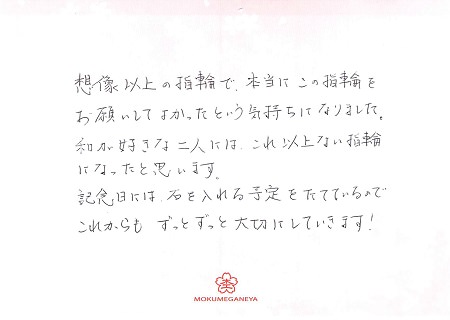 想像以上の指輪で、本当にこの指輪を
お願いしてよかったという気持ちになりました。
和が好きな二人には、これ以上ない指輪
になったと思います。
記念日には、石を入れる予定をたてているので
これからも ずっとずっと大切にしていきます!
MOKUMEGANEYA